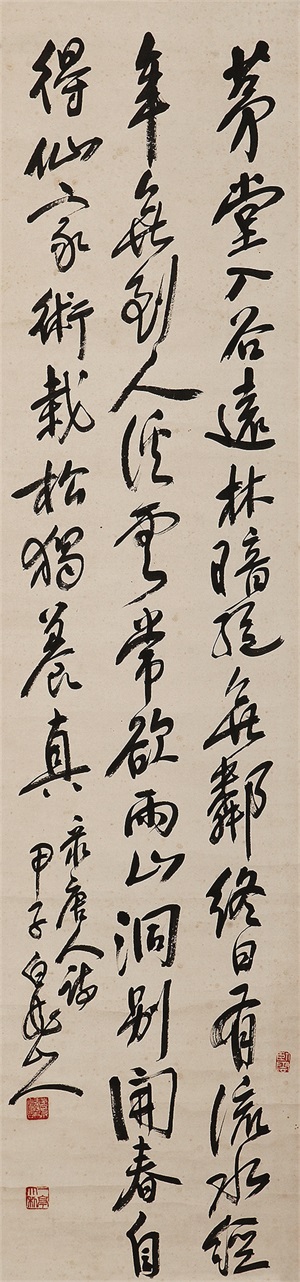 茅堂入谷遠林暗絕無鄰終日有流水經
年無到人溪雲常欲雨山洞別開春自
得仙家術栽松獨養真
彔唐人詩
甲子白龍山人